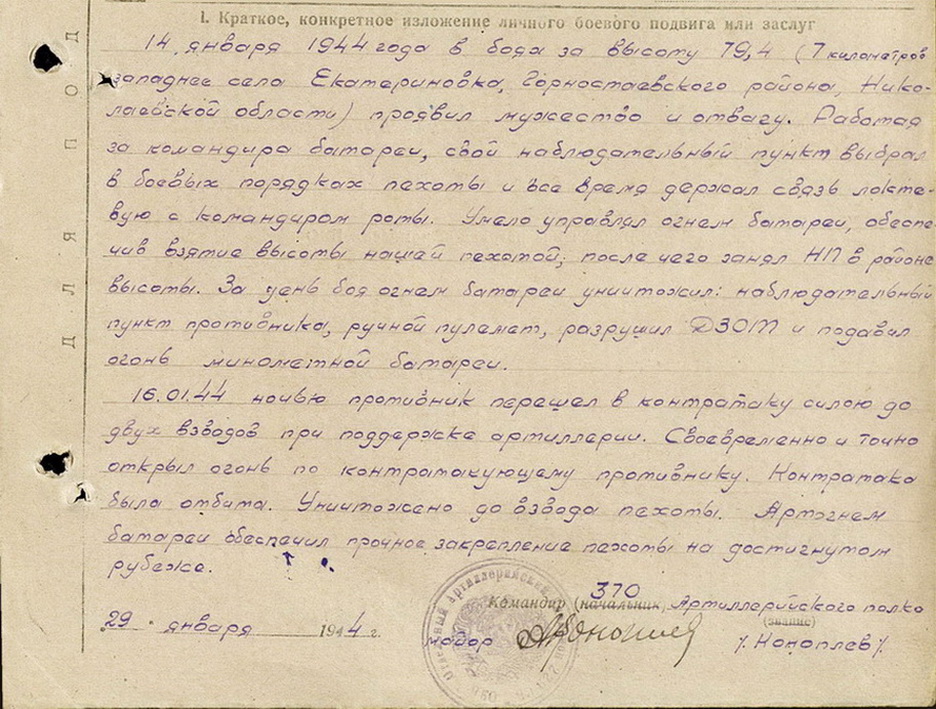 ДЛЯ ПОД
I. Краткое, конкретное изложение личного боевого подвига или заслуг
14 января 1944 года в боях за высоту 79,4 (7 километров
западнее села Екатериновка, Горностаевского района, Нико-
лаевской области) проявил мужество и отвагу. Работая
за командира батареи, свой наблюдательный пункт выбрал
в боевых порядках пехоты и все время держал связь локте-
вую с командиром роты. Умело управлял огнем батареи, обеспе-
чив взятие высоты нашей пехотой; после чего занял НП в районе
высоты. За день боя огнем батареи уничтожил: наблюдательный
пункт противника, ручной пулемет, разрушил ДЗОТ и подавил
огонь минометной батареи.
16.01.44 ночью противник перешел в контратаку силою до
двух взводов при поддержке артиллерии. Своевременно и точно
открыл огонь по контратакующему противнику. Контратака
была отбита. Уничтожено до взвода пехоты. Артогнем
батареи обеспечил прочное закрепление пехоты на достигнутом
рубеже.
370
Командир (начальник) Артиллерийского полка
(звание)
29 января 1944 г.
майор /Коноплев/